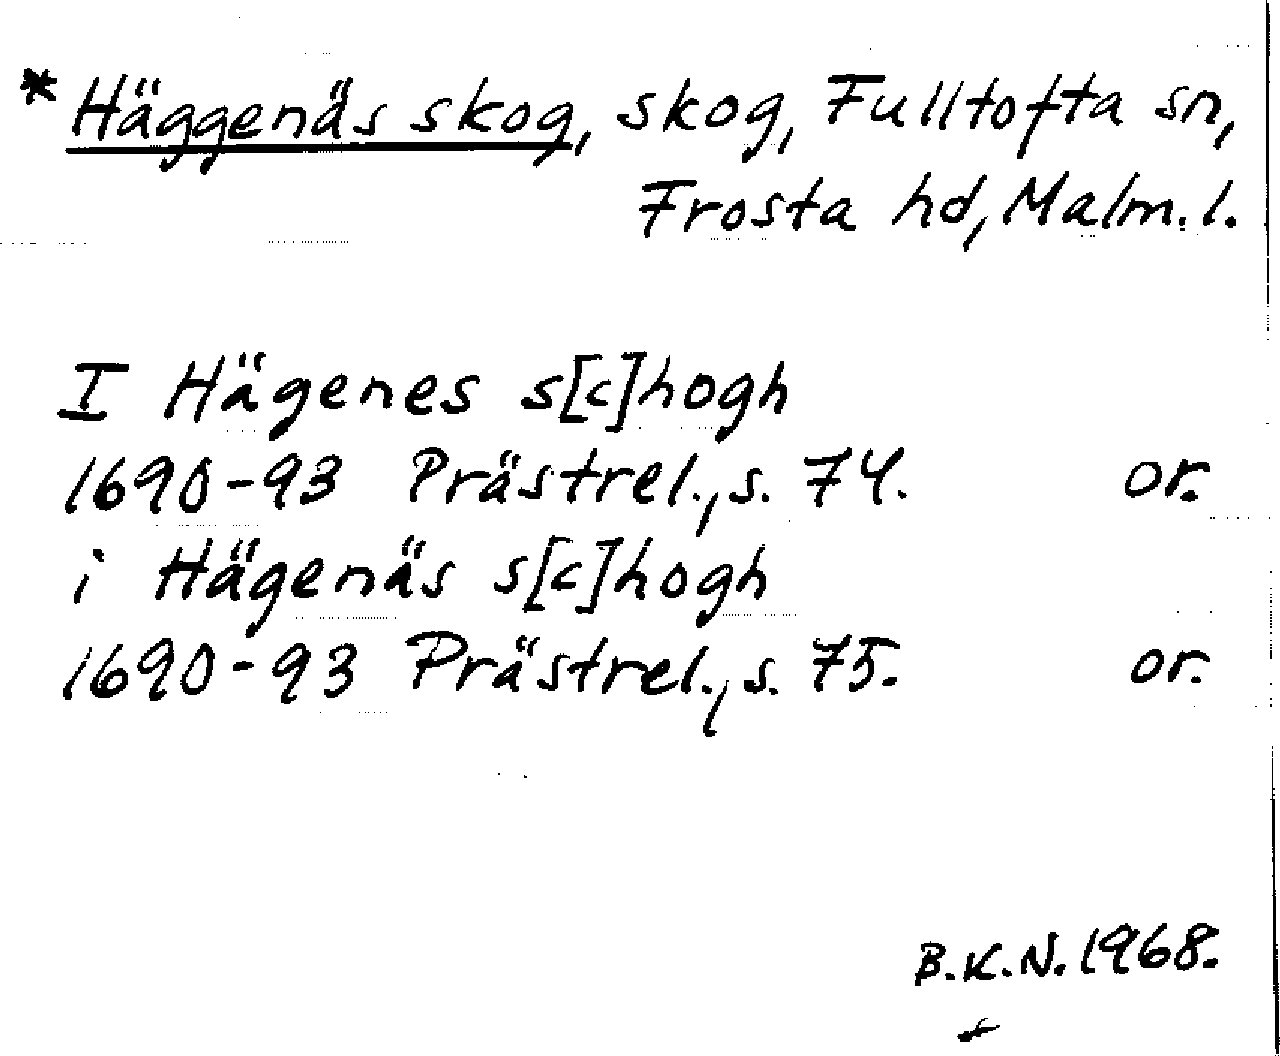 * Häggenäs skog, skog, Fulltofta sn,
Frosta hd, Malm. l.
I Hägenes s[c]hogh
1690-93 Prästrel., s. 74. or.
i Hägenäs s[c]hogh
1690-93 Prästrel., s. 75. or.
B.K.N. 1968.